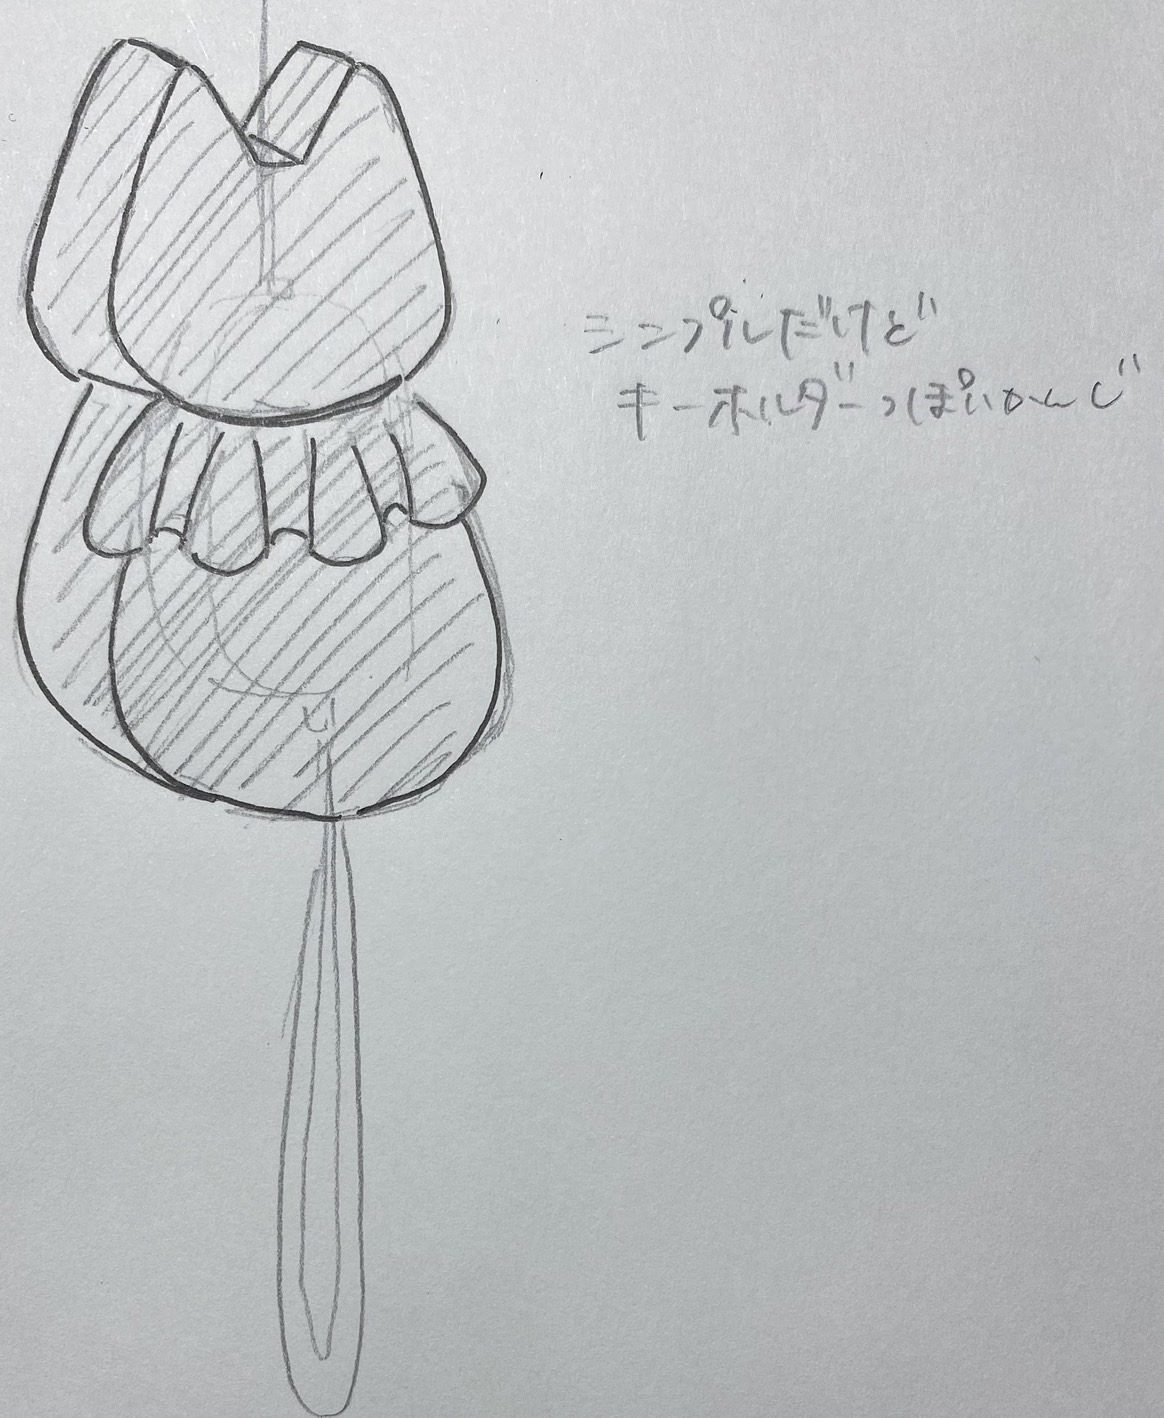 シンプルだけど
キーホルダーっぽいかんじ